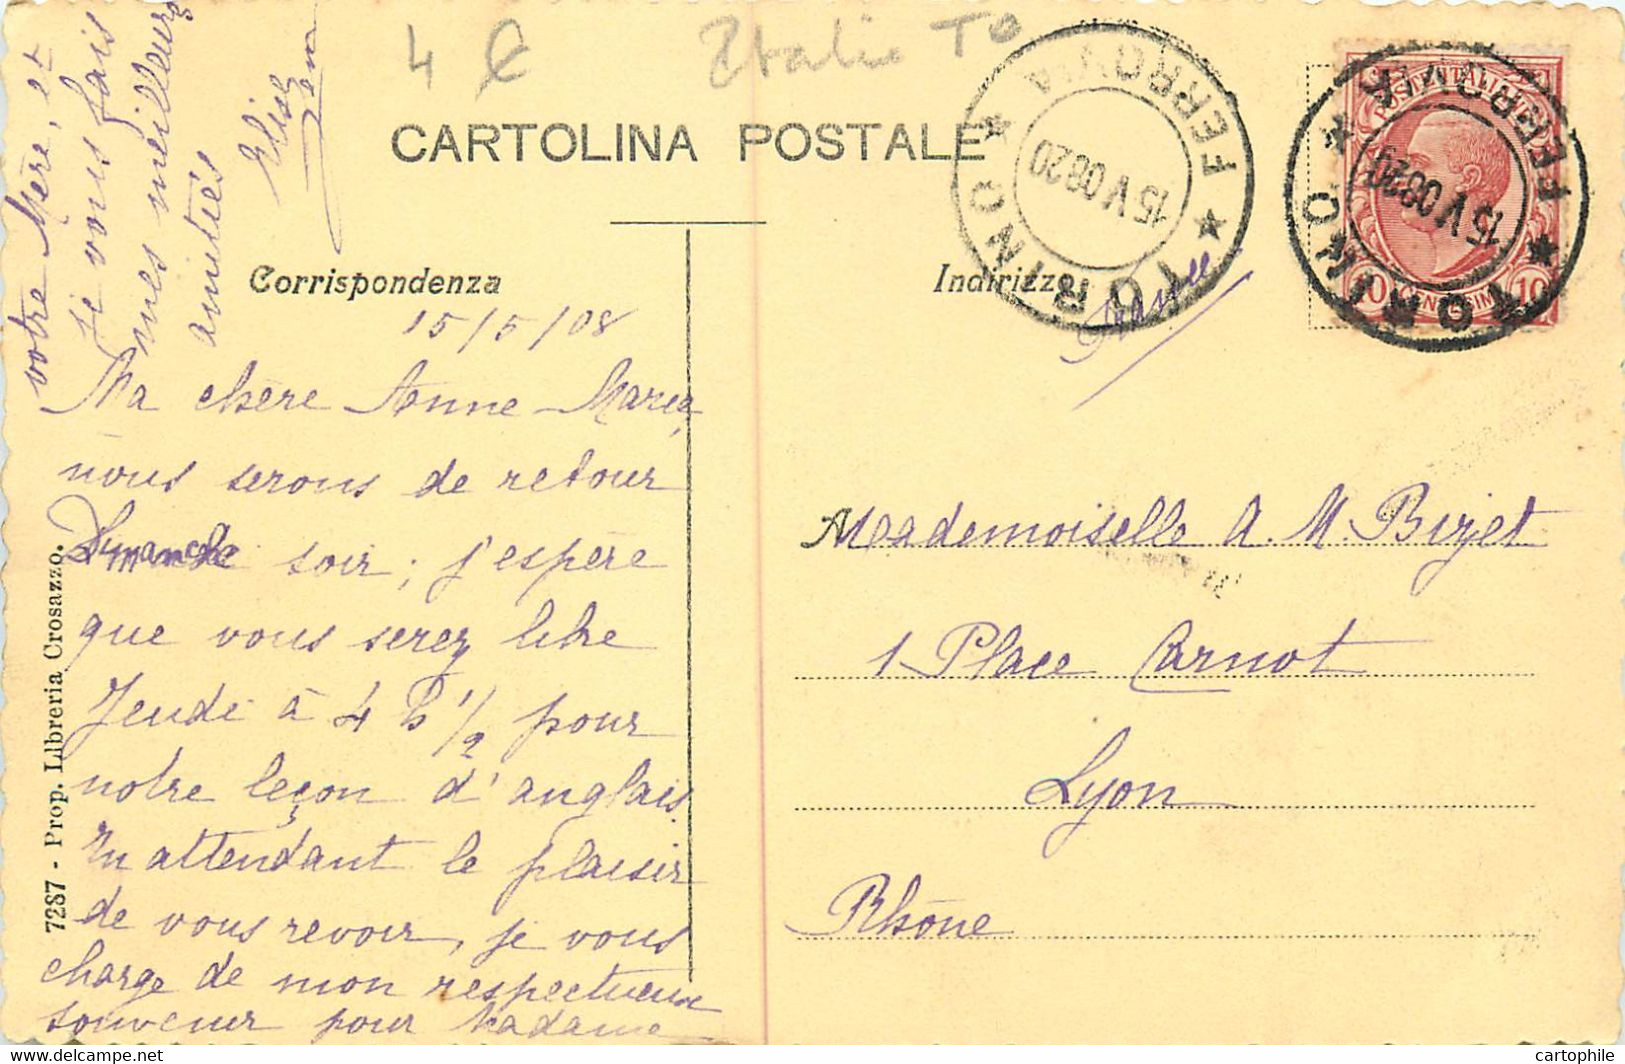 4 € Italie TO
CARTOLINA POSTALE
TORINO * FERROVIA *
15 V 08 20
TORINO * FERROVIA *
15 V 08 20
POSTE ITALIANE
10 CENTESIMI 10
Corrispondenza
Indirizzo
15/5/08
Ma chère Anne-Marea,
nous serons de retour
Dimanche soir; j'espère
que vous serez libre
Jeudi à 4 h 1/2 pour
notre leçon d'anglais.
En attendant le plaisir
de vous revoir, je vous
charge de mon respectueux
souvenir pour Madame
votre Mère, et
je vous fais
mes meilleurs
amitiés
Mademoiselle A. M. Bizet
1 Place Carnot
Lyon
Rhône
7287 - Prop. Libreria Crosazzo.
cartophile